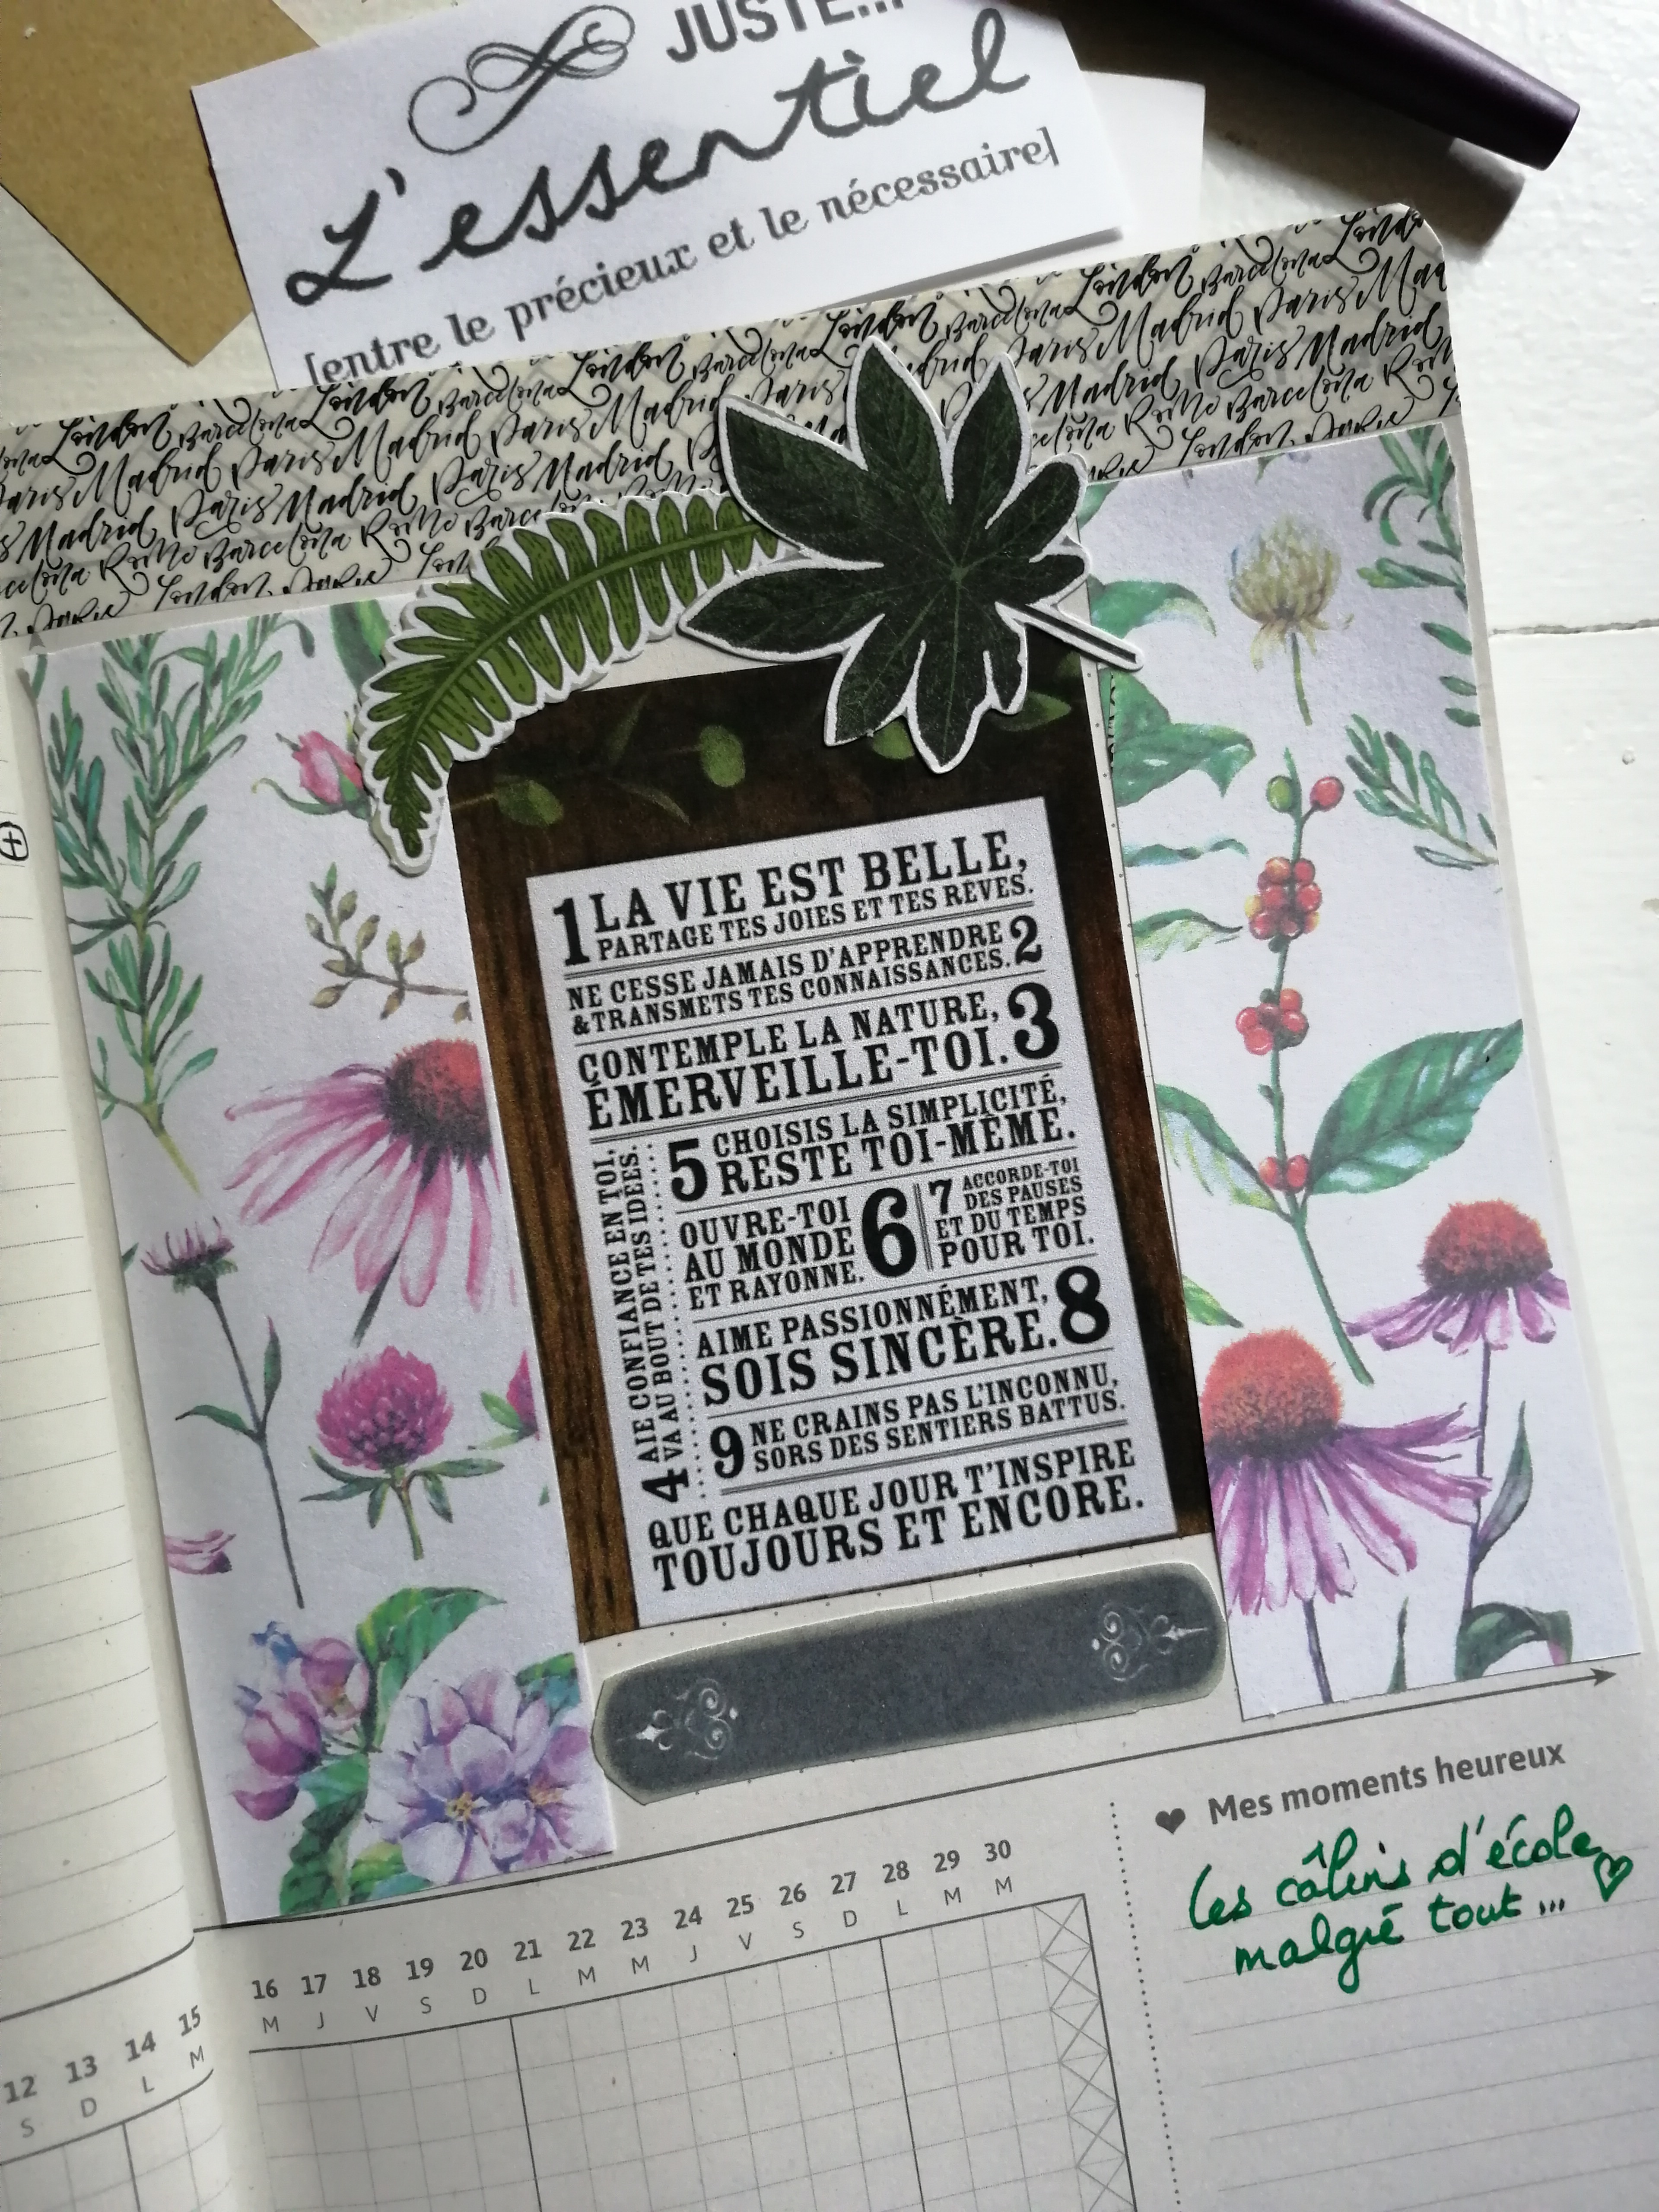 JUSTE...
L'essentiel
[entre le précieux et le nécessaire]
London Barcelona London Barcelona London Barcelona London Barcelona London
Paris Madrid Paris Madrid Paris Madrid Paris Madrid
Madrid Paris Madrid Paris Madrid
Barcelona Rome Barcelona Rome Barcelona Rome Barcelona Rome
London Paris London Paris
1 LA VIE EST BELLE,
PARTAGE TES JOIES ET TES RÊVES.
NE CESSE JAMAIS D'APPRENDRE 2
& TRANSMETS TES CONNAISSANCES.
CONTEMPLE LA NATURE, 3
ÉMERVEILLE-TOI.
4 AIE CONFIANCE EN TOI,
VA AU BOUT DE TES IDÉES.
5 CHOISIS LA SIMPLICITÉ,
RESTE TOI-MÊME.
OUVRE-TOI 6
AU MONDE
ET RAYONNE.
7 ACCORDE-TOI
DES PAUSES
ET DU TEMPS
POUR TOI.
AIME PASSIONNÉMENT, 8
SOIS SINCÈRE.
9 NE CRAINS PAS L'INCONNU,
SORS DES SENTIERS BATTUS.
QUE CHAQUE JOUR T'INSPIRE
TOUJOURS ET ENCORE.
♥ Mes moments heureux
Les câlins d'école
malgré tout... ♡
12 13 14 15 16 17 18 19 20 21 22 23 24 25 26 27 28 29 30
S D L M M J V S D L M M J V S D L M M